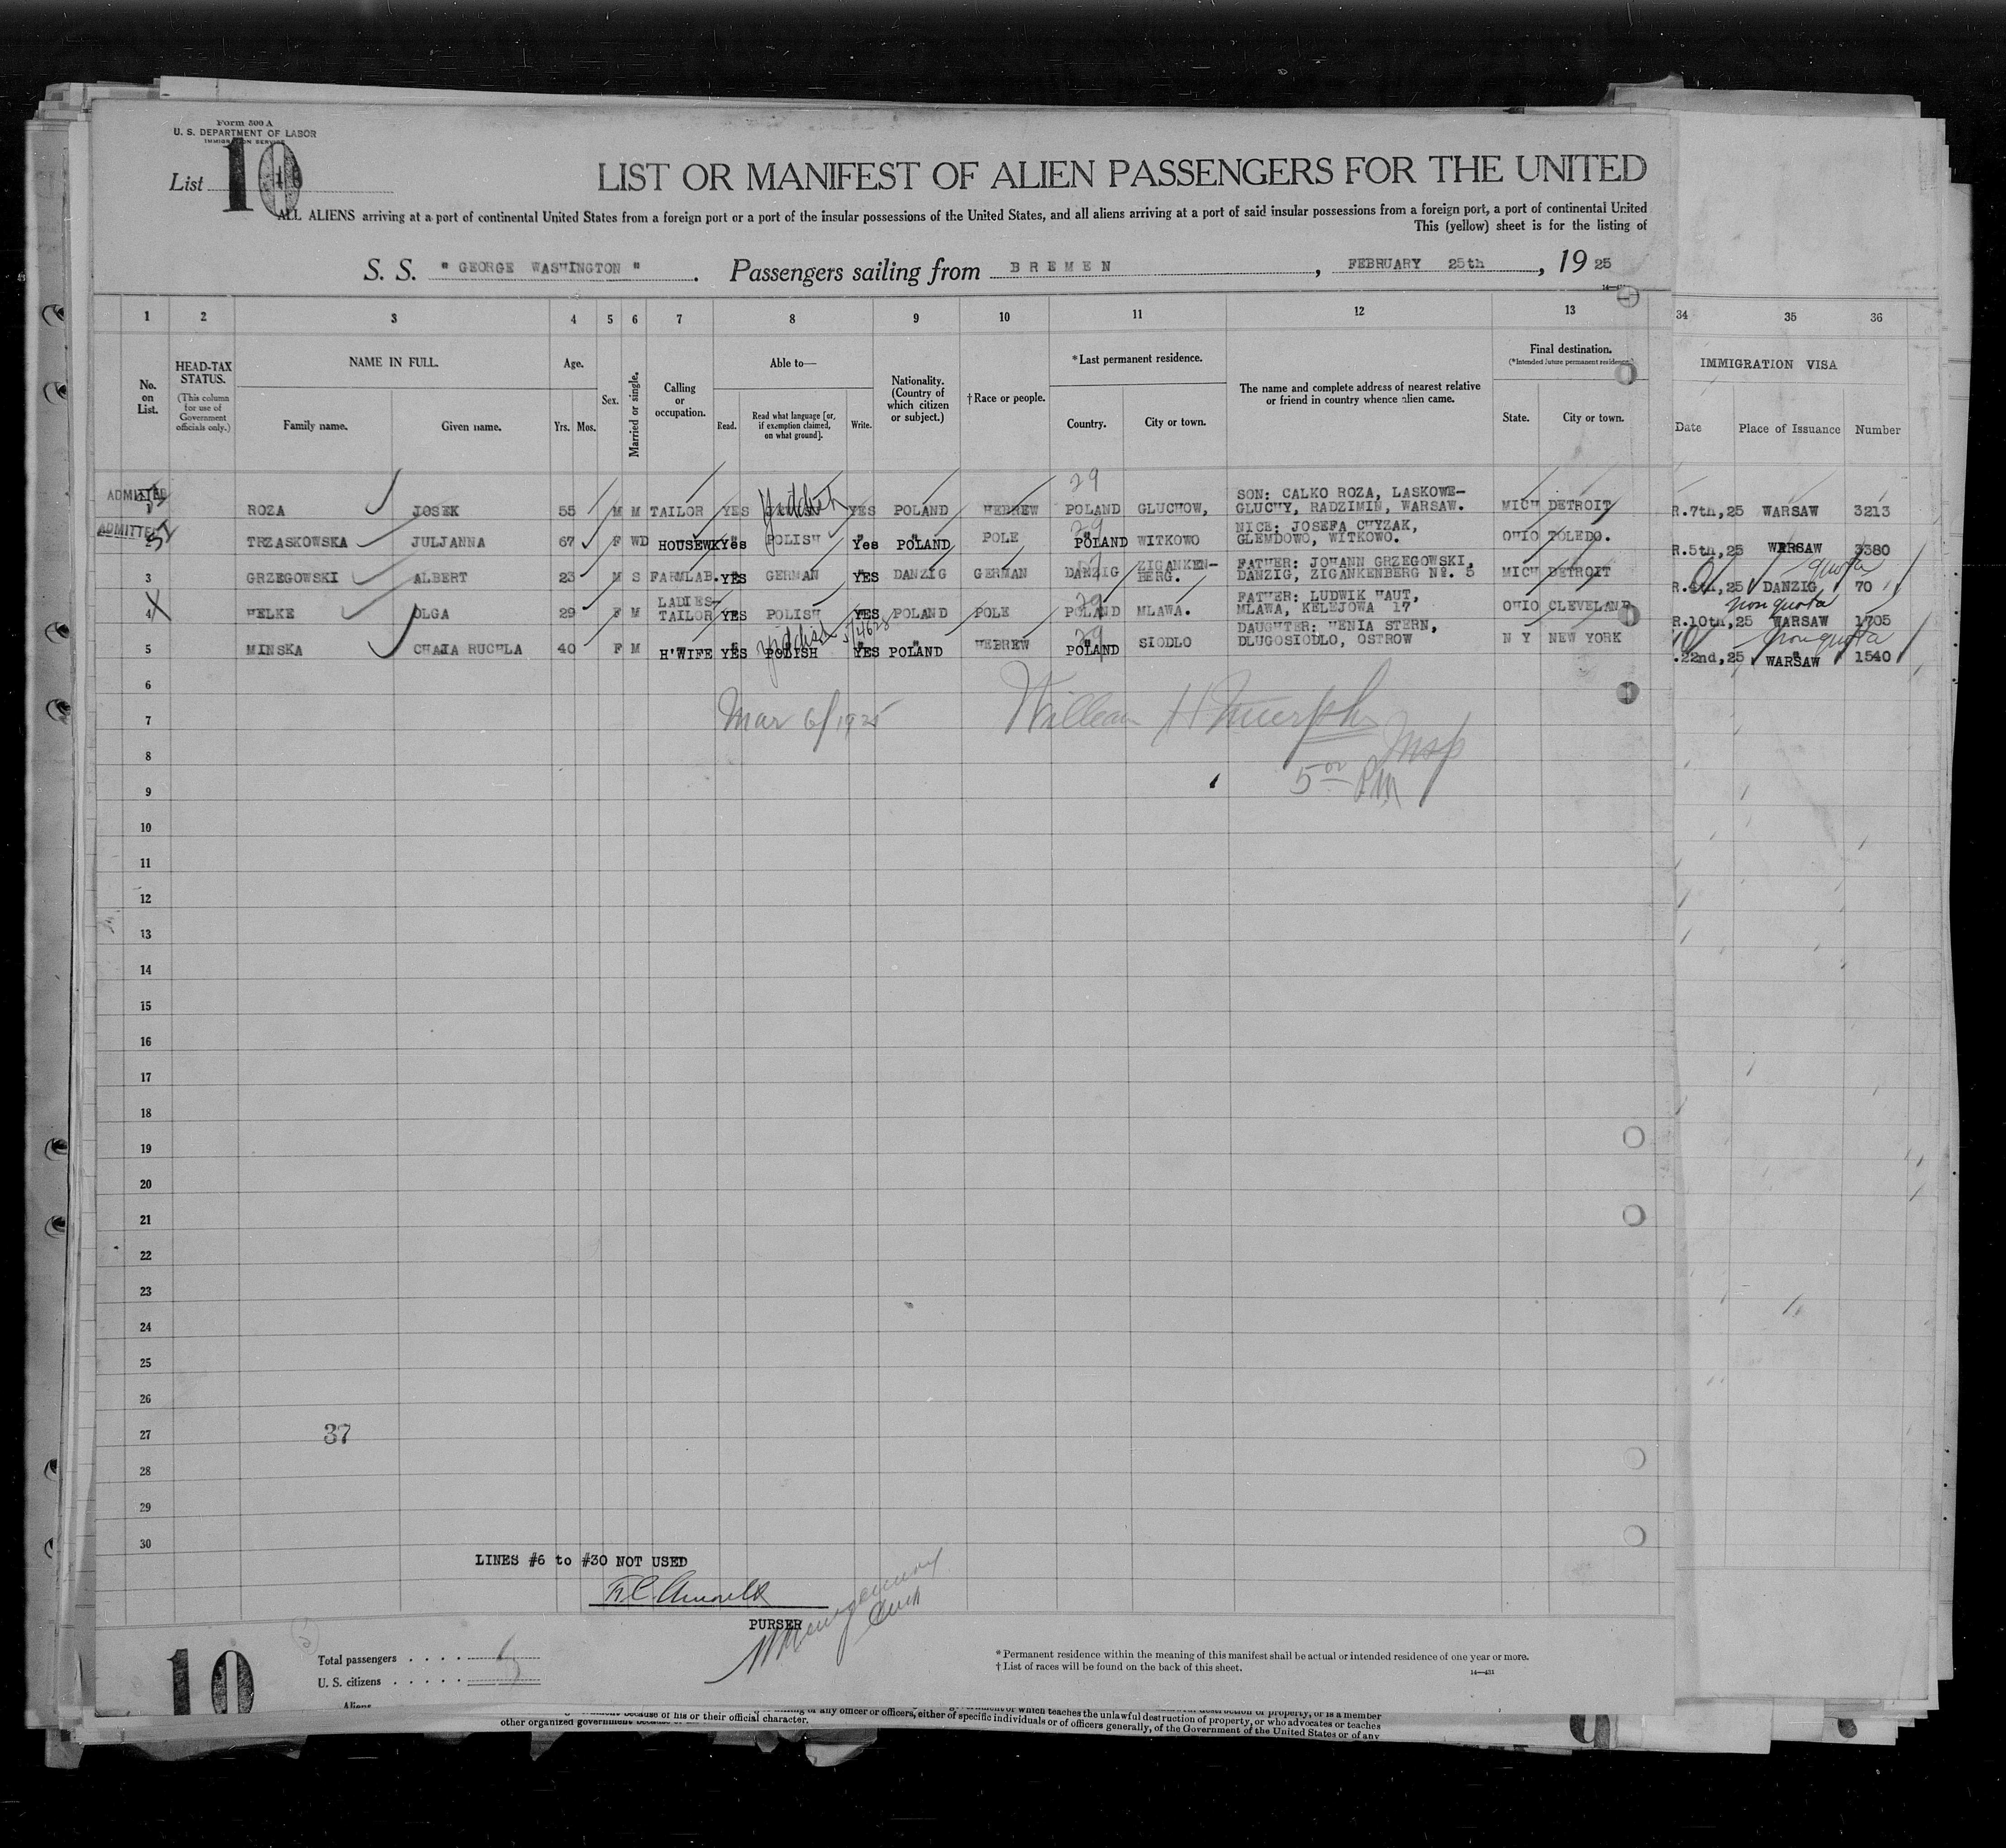 Form 500 A
U. S. DEPARTMENT OF LABOR
IMMIGRATION SERVICE
List 10
LIST OR MANIFEST OF ALIEN PASSENGERS FOR THE UNITED
ALL ALIENS arriving at a port of continental United States from a foreign port or a port of the insular possessions of the United States, and all aliens arriving at a port of said insular possessions from a foreign port, a port of continental United
This (yellow) sheet is for the listing of
S. S. " GEORGE WASHINGTON " . Passengers sailing from BREMEN , FEBRUARY 25th , 19 25
1 2 3 4 5 6 7 8 9 10 11 12 13 34 35 36
No. on List.
HEAD-TAX STATUS.
(This column for use of Government officials only.)
NAME IN FULL.
Family name. Given name.
Age.
Yrs. Mos.
Sex.
Married or single.
Calling or occupation.
Able to—
Read. Read what language [or, if exemption claimed, on what ground]. Write.
Nationality. (Country of which citizen or subject.)
† Race or people.
*Last permanent residence.
Country. City or town.
The name and complete address of nearest relative or friend in country whence alien came.
Final destination.
(*Intended future permanent residence.)
State. City or town.
IMMIGRATION VISA
Date Place of Issuance Number
ADMITTED ROZA JOSEK 55 M M TAILOR YES Yiddish YES POLAND HEBREW 29 POLAND GLUCHOW, SON: CALKO ROZA, LASKOWE-
GLUCHY, RADZIMIN, WARSAW. MICH DETROIT R.7th,25 WARSAW 3213
ADMITTED TRZASKOWSKA JULJANNA 67 F WD HOUSEWK Yes POLISH Yes POLAND POLE 29 POLAND WITKOWO NICE: JOSEFA CHYZAK,
GLEMDOWO, WITKOWO. OHIO TOLEDO. R.5th,25 WARSAW 3380
3 GRZEGOWSKI ALBERT 23 M S FARMLAB. YES GERMAN YES DANZIG GERMAN DANZIG ZIGANKEN-
BERG. FATHER: JOHANN GRZEGOWSKI,
DANZIG, ZIGANKENBERG Nº. 5 MICH DETROIT R.4th,25 DANZIG 70 quota
4 HELKE OLGA 29 F M LADIES-
TAILOR YES POLISH YES POLAND POLE 29 POLAND MLAWA. FATHER: LUDWIK HAUT,
MLAWA, KELEJOWA 17 OHIO CLEVELAND R.10th,25 WARSAW 1705 non quota
5 MINSKA CHAJA RUCHLA 40 F M H'WIFE YES Yiddish POLISH YES POLAND HEBREW 29 POLAND SIODLO DAUGHTER: HENIA STERN,
DLUGOSIODLO, OSTROW N Y NEW YORK .22nd,25 WARSAW 1540 non quota
6
7 Mar 6/1925 William H Murphy
Insp
8
9 5 00 PM
10
11
12
13
14
15
16
17
18
19
20
21
22
23
24
25
26
27 37
28
29
30
LINES #6 to #30 NOT USED
PURSER
10
Total passengers 5
U. S. citizens
Aliens
* Permanent residence within the meaning of this manifest shall be actual or intended residence of one year or more.
† List of races will be found on the back of this sheet.
14—431
of any officer or officers, either of specific individuals or of officers generally, of the Government of the United States or of any
other organized government because of his or their official character.